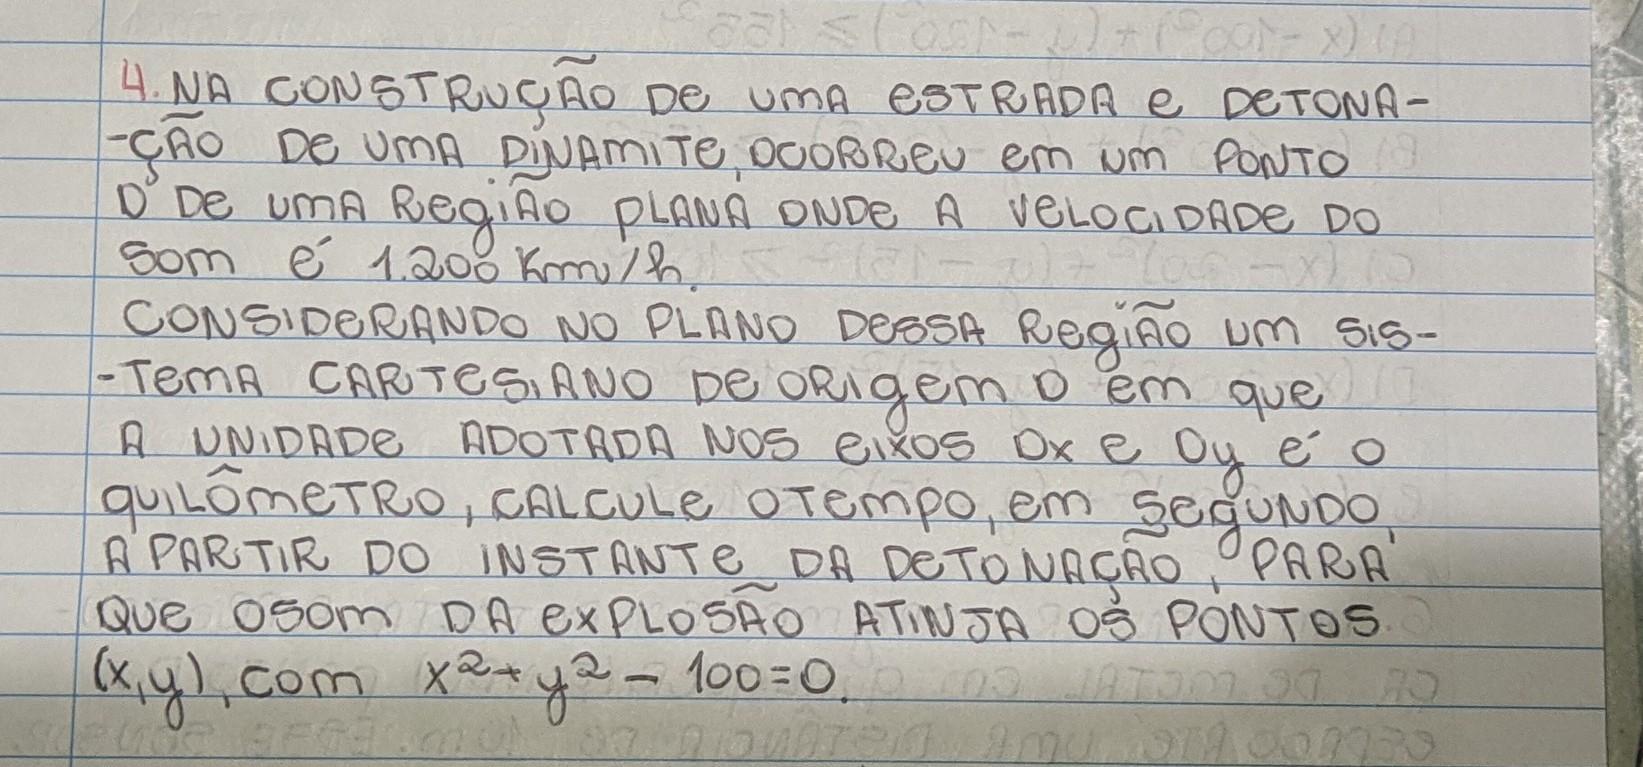 4. NA CONSTRUÇÃO DE UMA ESTRADA E DETONA-
-ÇÃO DE UMA DINAMITE, OCORREU EM UM PONTO
O DE UMA REGIÃO PLANA ONDE A VELOCIDADE DO
SOM É 1.200 Km/h.
CONSIDERANDO NO PLANO DESSA REGIÃO UM SIS-
-TEMA CARTESIANO DE ORIGEM O EM QUE
A UNIDADE ADOTADA NOS EIXOS Ox E Oy É O
QUILÔMETRO, CALCULE O TEMPO, EM SEGUNDO,
A PARTIR DO INSTANTE DA DETONAÇÃO, PARA
QUE O SOM DA EXPLOSÃO ATINJA OS PONTOS
(x,y), COM x²+y²-100=0.